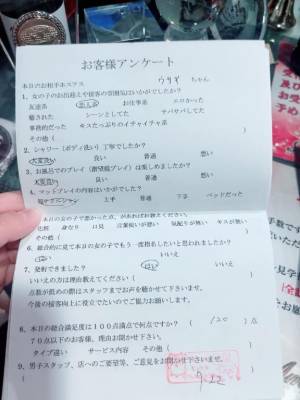 お客様アンケート
本日のお相手ホステス　ちゃん
1、女の子のお出迎えや接客の雰囲気はいかがでしたか？
友達系　恋人系　お仕事系　エロかった
癒された　シーンとしてた　サバサバしてた
事務的だった　キスたっぷりのイチャイチャ系
その他（
2、シャワー（ボディ洗い）丁寧でしたか？
大変良い　良い　普通　悪い
3、お風呂でのプレイ（潜望鏡プレイ）は楽しめましたか？
大変良い　良い　普通　悪い
4、マットプレイの内容はいかがでした？
上手　普通　下手　ベッドだった
本日の女の子で悪かった点が、あればお教えください。
身なり　口臭　言葉使いが悪い　気配りが無い　キスが無い
その他（
6、総合的に見て本日の女の子でもう一度指名したいと思われましたか？
はい　いいえ
7、発射できました？　はい　いいえ
いいえの方は理由教えてください（
点数が低めの際はスタッフまでお声を駆けて下さいませ。
今後の接客向上に役立てたいのでご協力お願いします。
8、本日の総合満足度は１００点満点で何点ですか？（　120　）点
７０点以下のお客様、理由お聞かせ下さい。
タイプ違い　サービス内容　その他（
9、男子スタッフ、店へのご要望等、ご意見をお聞かせ下さいませ。
7.22